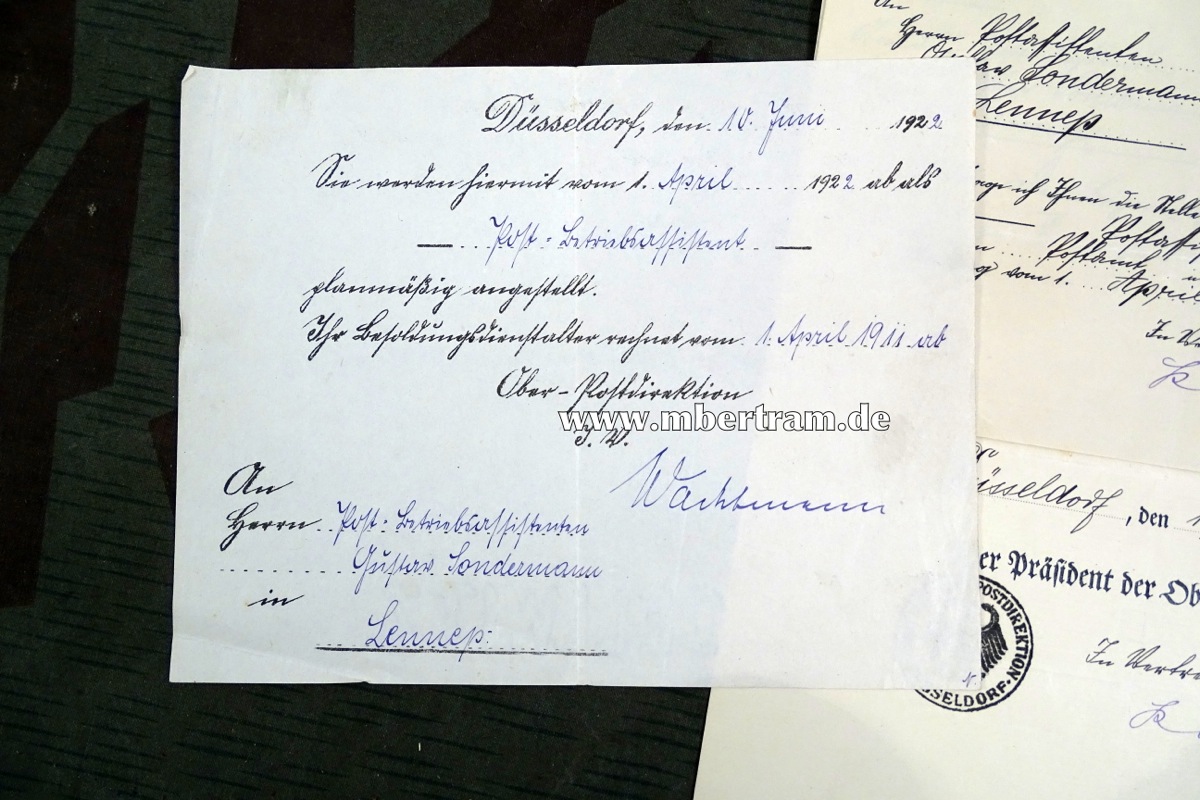 Düsseldorf, den 10. Juni 1922
Sie werden hiermit vom 1. April 1922 ab als
Post-Betriebsassistent
planmäßig angestellt.
Ihr Besoldungsdienstalter rechnet vom 1. April 1911 ab
Ober-Postdirektion
www.mbertram.de
I. V.
Wachtmann
An
Herrn Post-Betriebsassistenten
Gustav Sondermann
in
Lennep.
An
Herrn Postassistenten
Sondermann
Lennep
ich Ihnen die Stelle
Postamt
vom 1. April
In Ve
Düsseldorf, den
er Präsident der Ob
POSTDIREKTION
SSELDORF
In Vertre